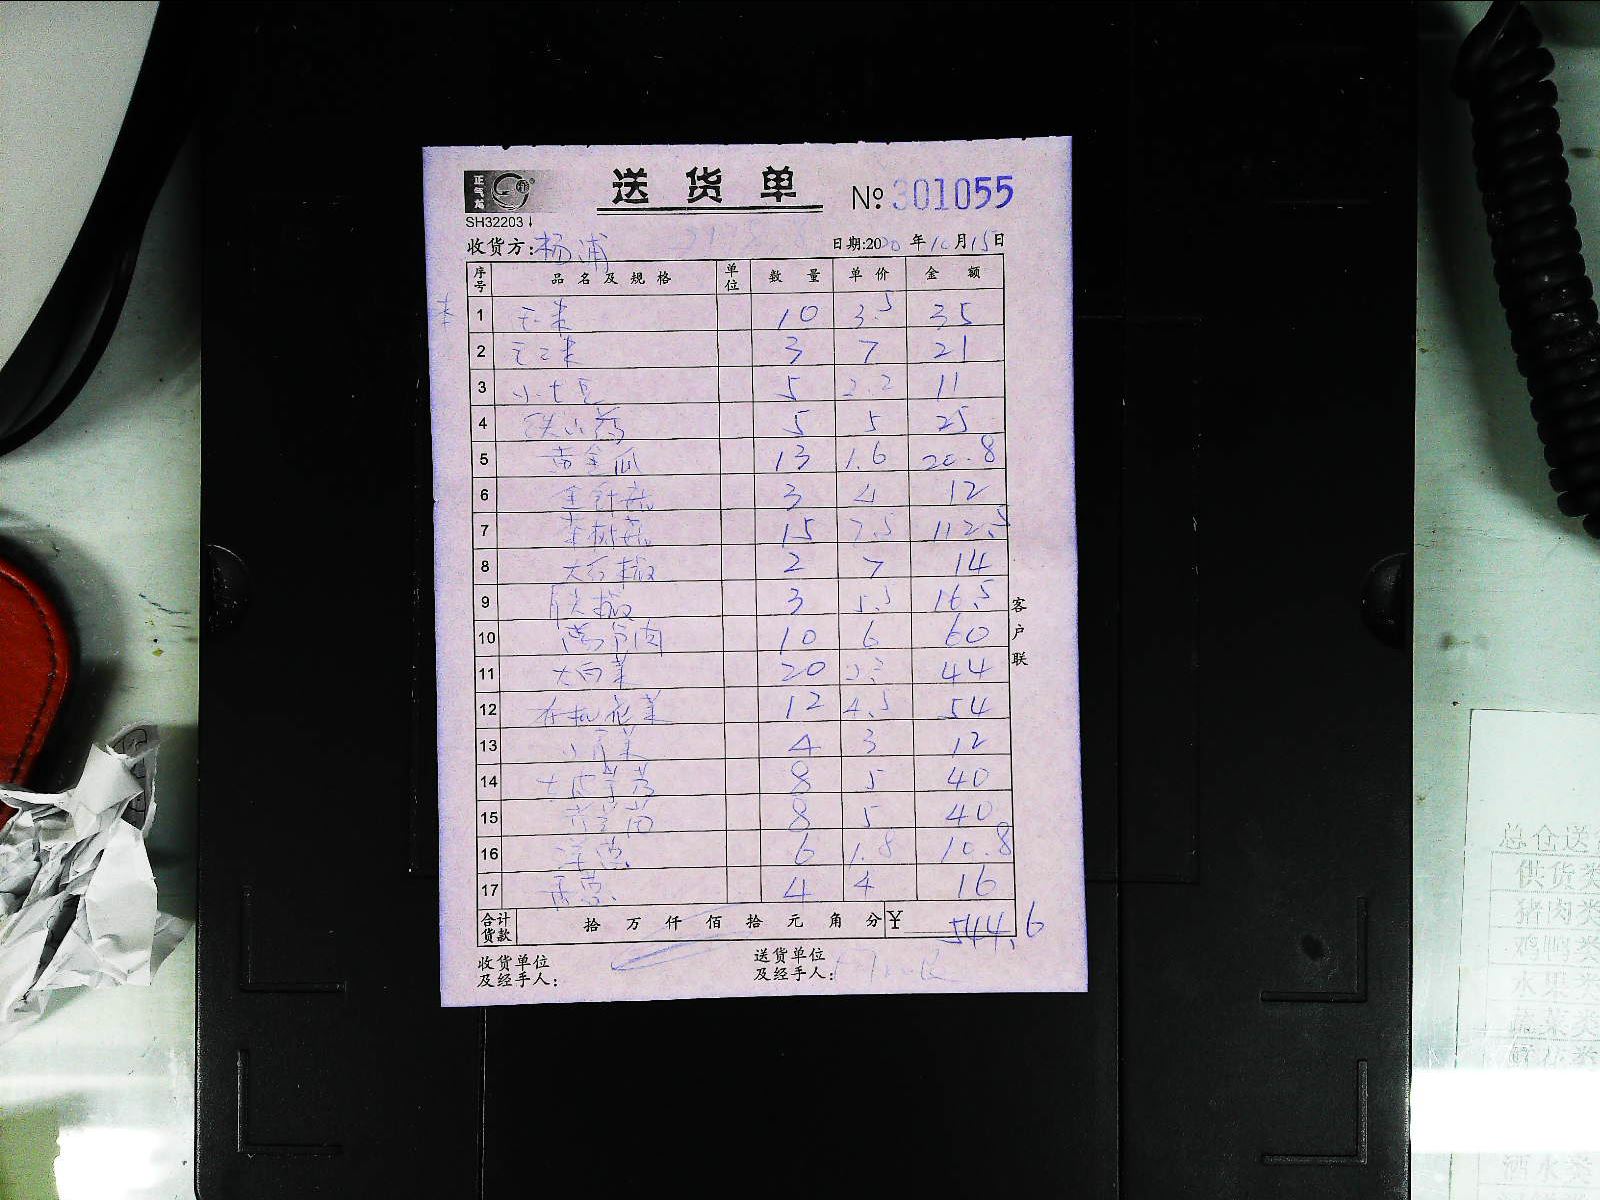 正气龙
送货单 № 301055
SH32203
收货方: 杨浦 日期:2020年10月15日
序号 品名及规格 单位 数量 单价 金额
1 玉米 10 3.5 35
2 3 7 21
3 小土豆 5 2.2 11
4 铁山药 5 5 25
5 黄金瓜 13 1.6 20.8
6 金针菇 3 4 12
7 茶树菇 15 7.5 112.5
8 大红椒 2 7 14
9 尖椒 3 5.5 16.5
10 10 6 60
11 大白菜 20 2.2 44
12 有机花菜 12 4.5 54
13 小青菜 4 3 12
14 8 5 40
15 8 5 40
16 洋葱 6 1.8 10.8
17 香葱 4 4 16
合计货款 拾 万 仟 佰 拾 元 角 分 ¥ 544.6
收货单位及经手人:
送货单位及经手人:
客户联
总仓送
供货类
猪肉类
鸡鸭类
水果类
蔬菜类
酒水类